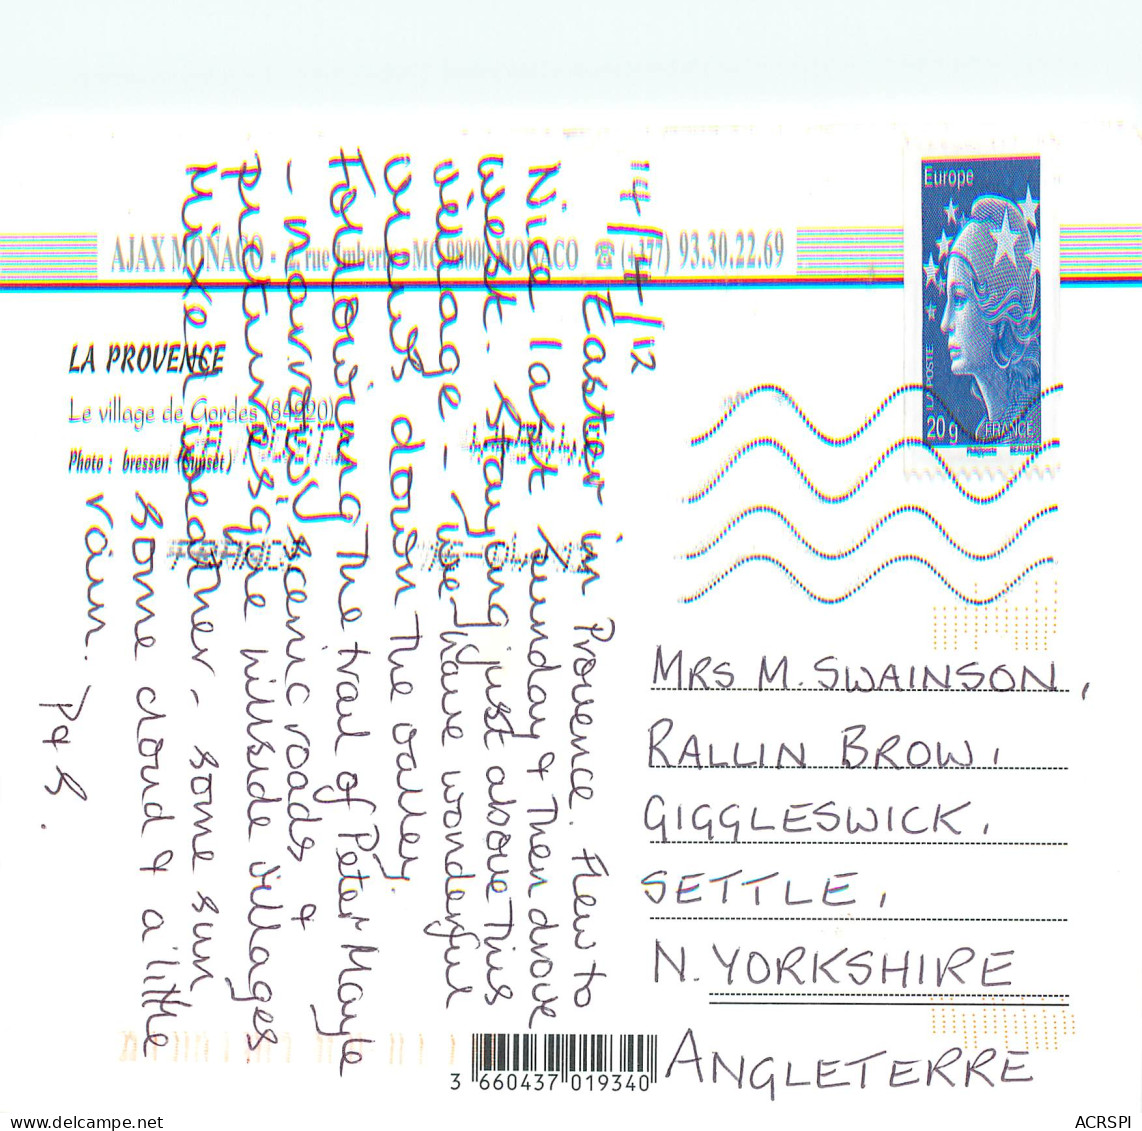 Europe
LA POSTE
20 g
FRANCE
AJAX MONACO - 2, rue Imberty - MC 98000 MONACO ☎ (+377) 93.30.22.69
LA PROVENCE
Le village de Gordes (84220)
Photo : bressen (Sunset)
14/4/12
Easter in Provence. Flew to
Nice last Sunday & then drove
west. Staying just above this
village - we have wonderful
views down the valley.
Following the trail of Peter Mayle
- narrow scenic roads &
picturesque hillside villages
Mixed weather - some sun
some cloud & a little
rain.
P & S.
MRS M. SWAINSON,
RALLIN BROW,
GIGGLESWICK,
SETTLE,
N. YORKSHIRE
ANGLETERRE
3 660437 019340
ACRSPI